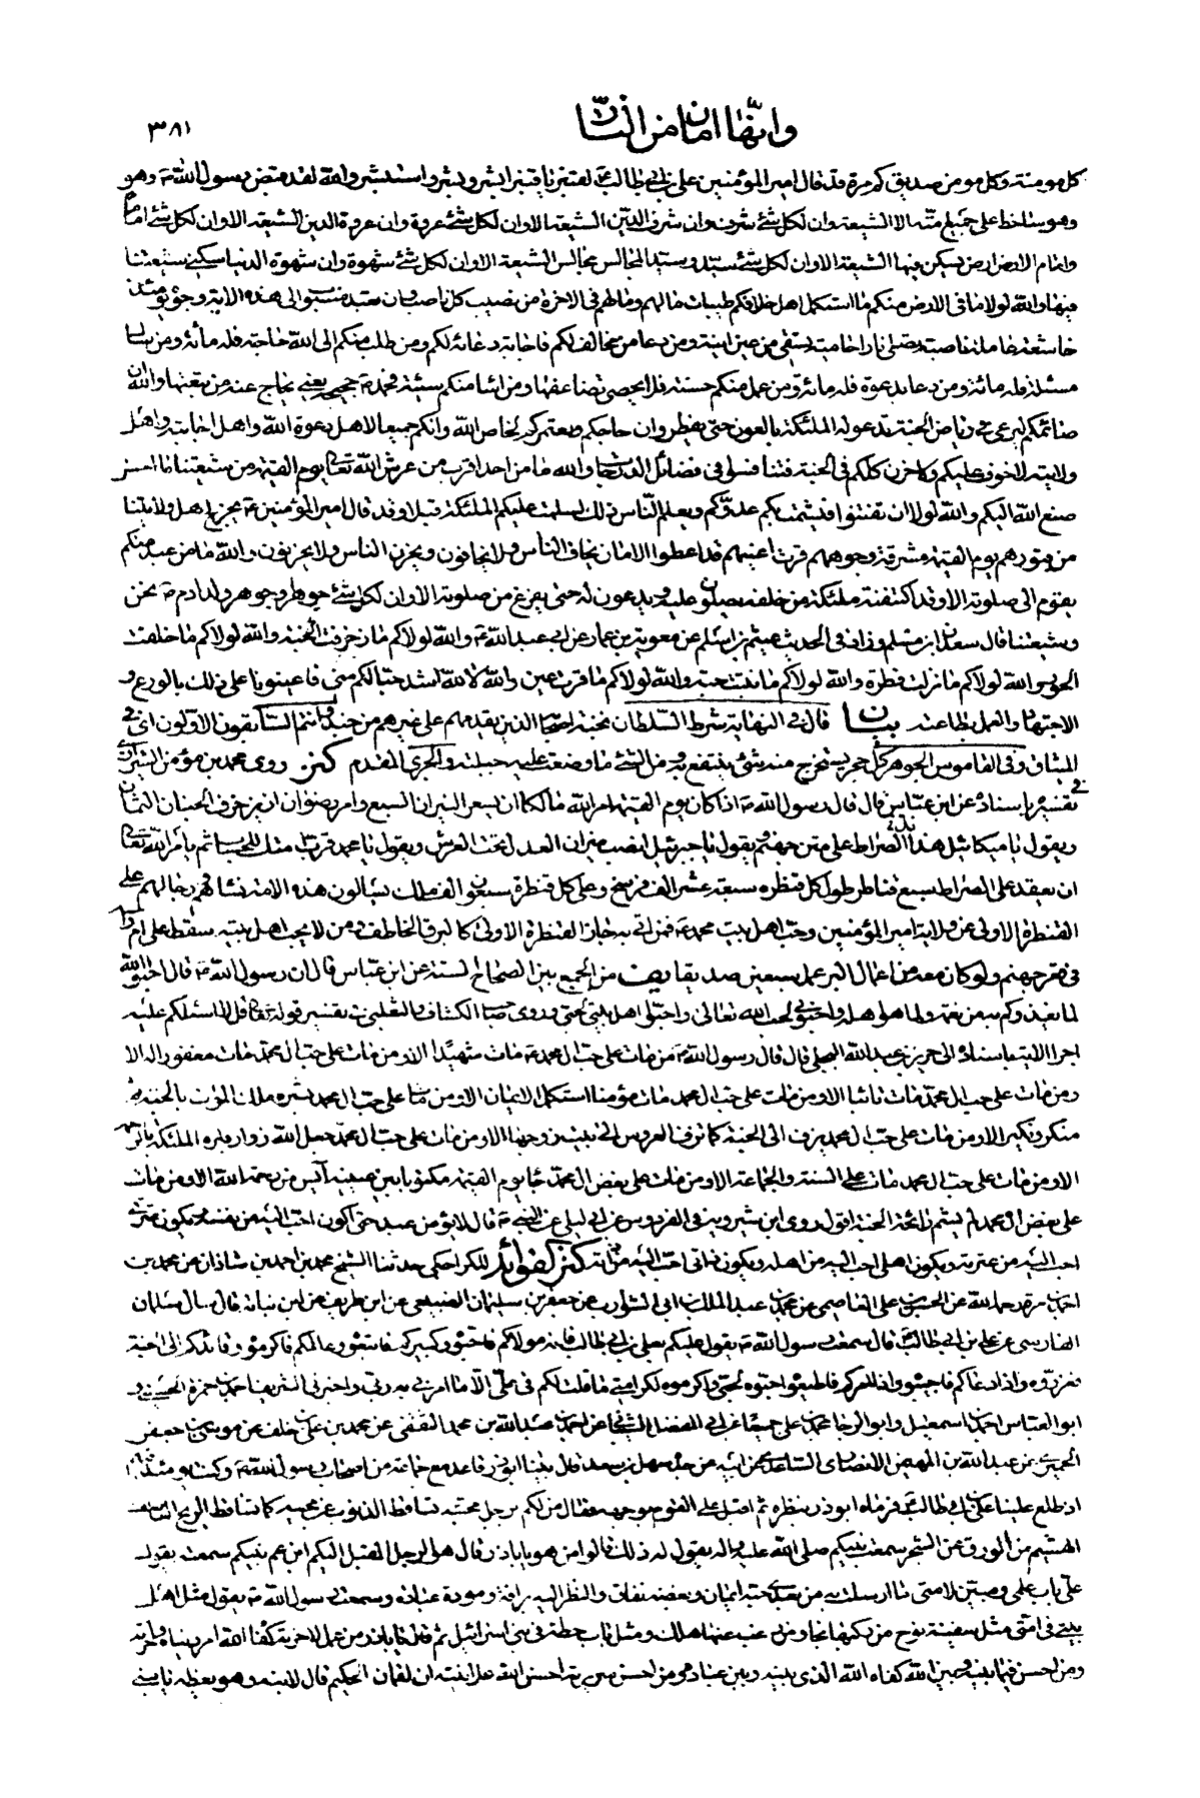 وانها امان من النار
٣٨١
كل مؤمنة وكل مؤمن صديق كم مرة قد قال امير المؤمنين علي بن ابي طالب لقنبر يا قنبر ابشر وبشر واستبشر والله لقد قبض رسول الله وهو
وهو ساخط على جميع امته الا الشيعة وان لكل شئ شرف وان شرف الدين الشيعة الا وان لكل شئ عروة وان عروة الدين الشيعة الا وان لكل شئ امام
وامام الارض ارض يسكن فيها الشيعة الا وان لكل شئ سيد وسيد المجالس مجالس الشيعة الا وان لكل شئ شهوة وان شهوة الدنيا سكنى شيعتنا
فيها والله لولا ما في الارض منكم ما استكمل اهل خلافكم طيبات مالهم ومالهم في الاخرة من نصيب كل ناصب وان تعبد منسوب الى هذه الاية وجوه يومئذ
خاشعة عاملة ناصبة تصلى نارا حامية تسقى من عين انية ومن دعا من مخالف لكم فاجابة دعائه لكم ومن طلب منكم الى الله حاجة فله مائة ومن سال
مسئلة فله مائة ومن دعا بدعوة فله مائة ومن عمل منكم حسنة فلا يحصى تضاعفها ومن اساء منكم سيئة فمحمد حجيجه يعني يحاج عنه من تبعتها والله ان
صائمكم ليرعى في رياض الجنة تدعو له الملئكة بالعون حتى يفطر وان حاجكم ومعتمركم لخاص الله وانكم جميعا لاهل دعوة الله واهل اجابته واهل
ولايته لا خوف عليكم ولا حزن كلكم في الجنة فتنافسوا في فضائل الدرجات والله ما من احد اقرب من عرش الله تعالى يوم القيمة من شيعتنا ما احسن
صنع الله اليكم والله لولا ان تفتنوا فيشمت بكم عدوكم ويعلم الناس ذلك لسلمت عليكم الملئكة قبلا وقد قال امير المؤمنين يخرج اهل ولايتنا
من قبورهم يوم القيمة مشرقة وجوههم قرت اعينهم قد اعطوا الامان يخاف الناس ولا يخافون ويحزن الناس ولا يحزنون والله ما من عبد منكم
يقوم الى صلوته الا وقد اكتنفته ملئكة من خلفه يصلون عليه ويدعون له حتى يفرغ من صلوته الا وان لكل شئ جوهرا وجوهر ولد ادم نحن
وشيعتنا قال سعدان بن مسلم وزاد في الحديث عيثم بن اسلم عن معوية بن عمار عن ابي عبد الله والله لولاكم ما زخرفت الجنة والله لولاكم ما خلقت
الحور والله لولاكم ما نزلت قطرة والله لولاكم ما نبتت حبة والله لولاكم ما قرت عين والله لله اشد حبا لكم مني فاعينونا على ذلك بالورع و
الاجتهاد والعمل بطاعته بيان قال في النهاية شرط السلطان نخبة اصحابه الذين يقدمهم على غيرهم من جنده وانتم السابقون الاولون اي في
الميثاق وفي القاموس الجوهر كل حجر يستخرج منه شئ ينتفع به ومن الشئ ما وضعت عليه جبلته والجري المقدم كنز روى محمد بن مؤمن الشيرازي
في تفسيره باسناده عن ابن عباس قال قال رسول الله اذا كان يوم القيمة امر الله مالكا ان يسعر النيران السبع وامر رضوان ان يزخرف الجنان الثمان
ويقول يا ميكائيل مد الصراط على متن جهنم ويقول يا جبرئيل انصب ميزان العدل تحت العرش ويقول يا محمد قرب امتك للحساب ثم يامر الله تعالى
ان يعقد على الصراط سبع قناطر طول كل قنطرة سبعة عشر الف فرسخ وعلى كل قنطرة سبعون الف ملك يسالون هذه الامة نساؤهم ورجالهم على
القنطرة الاولى عن ولاية امير المؤمنين وحب اهل بيت محمد فمن اتى به جاز القنطرة الاولى كالبرق الخاطف ومن لا يحب اهل بيته سقط على ام راسه
في قعر جهنم ولو كان معه من اعمال البر عمل سبعين صديقا من الجمع بين الصحاح الستة عن ابن عباس قال ان رسول الله قال احبوا الله
لما يغذوكم به من نعمه ولما هو اهله واحبوني لحب الله تعالى واحبوا اهل بيتي لحبي وروى صاحب الكشاف والثعلبي في تفسير قوله تعالى قل لا اسئلكم عليه
اجرا الاية باسناده الى جرير بن عبد الله البجلي قال قال رسول الله من مات على حب ال محمد مات شهيدا الا ومن مات على حب ال محمد مات مغفورا له الا
ومن مات على حب ال محمد مات تائبا الا ومن مات على حب ال محمد مات مؤمنا استكمل الايمان الا ومن مات على حب ال محمد بشره ملك الموت بالجنة ثم
منكر ونكير الا ومن مات على حب ال محمد يزف الى الجنة كما تزف العروس الى بيت زوجها الا ومن مات على حب ال محمد جعل الله زوار قبره الملئكة بالرحمة
الا ومن مات على حب ال محمد مات على السنة والجماعة الا ومن مات على بغض ال محمد جاء يوم القيمة مكتوبا بين عينيه آيس من رحمة الله الا ومن مات
على بغض ال محمد لم يشم رائحة الجنة اقول روى ابن شيرويه في الفردوس عن ابي ليلى عن النبي قال لا يؤمن عبد حتى اكون احب اليه من نفسه ويكون عترتي
احب اليه من عترته ويكون اهلي احب اليه من اهله ويكون ذاتي احب اليه من ذاته كنز الفوائد للكراجكي حدثنا الشيخ محمد بن احمد بن شاذان عن محمد بن
احمد بن مرة رحمه الله عن الحسن بن علي العاصمي عن محمد بن عبد الملك بن ابي الشوارب عن جعفر بن سليمان الضبيعي عن ابن طريف عن ابن نباتة قال سال سلمان
الفارسي عن علي بن ابي طالب قال سمعت رسول الله يقول عليكم بعلي بن ابي طالب فانه مولاكم فاحبوه وكبيركم فاتبعوه وعالمكم فاكرموه وقائدكم الى الجنة
فعززوه واذا دعاكم فاجيبوه واذا امركم فاطيعوه احبوه لحبي واكرموه لكرامتي ما قلت لكم في علي الا ما امرني به ربي واخبرني الشريف احمد بن حمزة الحسيني و
ابو العباس احمد بن اسمعيل وابو الرجا محمد بن علي جميعا عن ابي المفضل الشيباني عن احمد بن عبيد الله بن محمد الثقفي عن محمد بن علي بن خلف عن موسى بن جعفر
عن عبد الله بن المهيمن الانصاري الساعدي عن ابيه عن جده سهل بن سعد قال بينا ابو ذر قاعد مع جماعة من اصحاب رسول الله وكنت يومئذ فيهم
اذ طلع علينا علي بن ابي طالب فرماه ابو ذر بنظره ثم اقبل على القوم بوجهه فقال من لكم برجل محبته تساقط الذنوب عن محبيه كما تساقط الريح العاصف
الهشيم من الورق عن الشجر سمعت نبيكم صلى الله عليه واله يقول له ذلك قالوا من هو يا باذر قال هو الرجل المقبل اليكم ابن عم نبيكم سمعته يقول
علي باب علمي ومبين لامتي ما ارسلت به من بعدي حبه ايمان وبغضه نفاق والنظر اليه برافة ومودة عبادة وسمعت رسول الله يقول مثل اهل
بيتي في امتي مثل سفينة نوح من ركبها نجا ومن رغب عنها هلك ومثل باب حطة في بني اسرائيل ومن عمل لاخرته كفاه الله امر دنياه واخرته
ومن احسن فيما بينه وبين الله كفاه الله الذي بينه وبين عباده ومن احسن سريرته احسن الله علانيته ان لقمان الحكيم قال لابنه وهو يعظه يا بني